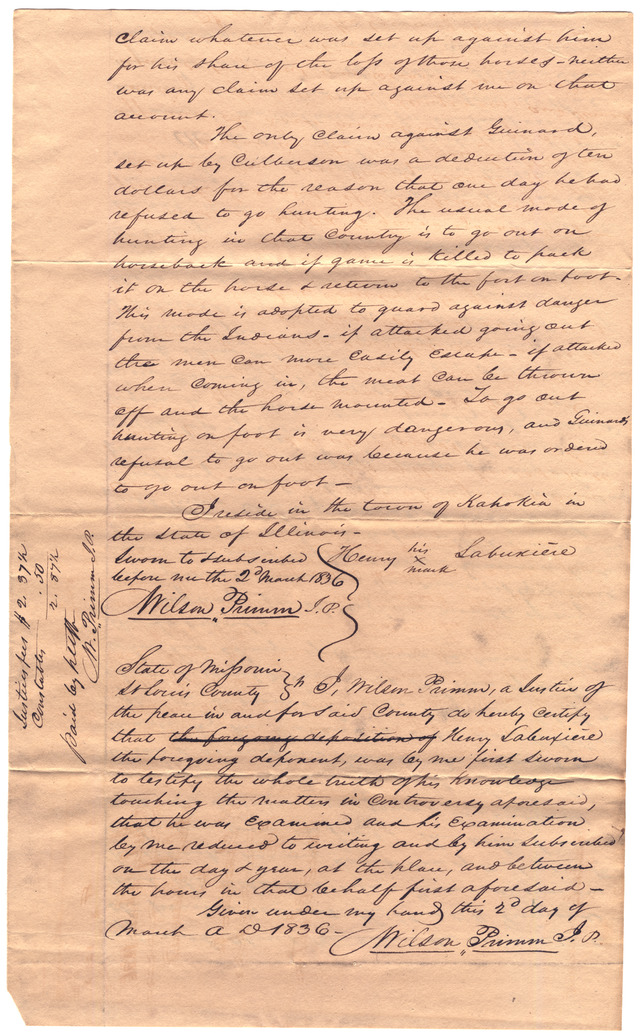 claim whatever was set up against him
for his share of the loss of those horses - neither
was any claim set up against me on that
account.
The only claim against Guinard,
set up by Culberson was a deduction of ten
dollars for the reason that one day he had
refused to go hunting. The usual mode of
hunting in that Country is to go out on
horseback and if game is killed to pack
it on the horse & return to the fort on foot.
This mode is adopted to guard against danger
from the Indians - if attacked going out
the men can more easily escape - if attacked
when coming in, the meat can be thrown
off and the horse mounted - To go out
hunting on foot is very dangerous, and Guinard's
refusal to go out was because he was ordered
to go out on foot -
I reside in the town of Kahokia in
the State of Illinois -
Sworn to & subscribed
before me the 2d March 1836
Wilson Primm J.P.
Henry his mark Labuxière
State of Missouri
St Louis County
I, Wilson Primm, a Justice of
the peace in and for said County do hereby certify
that the foregoing deposition of Henry Labuxière
the foregoing deponent, was by me first sworn
to testify the whole truth of his knowledge
touching the matters in controversy aforesaid,
that he was examined and his examination
by me reduced to writing and by him subscribed
on the day & year, at the place, and between
the hours in that behalf first aforesaid -
Given under my hand this 2d day of
March A D 1836 -
Wilson Primm J.P.
Justices fees $2. 37½
Constables .50
2. 87½
paid by plff
W. Primm J.P.